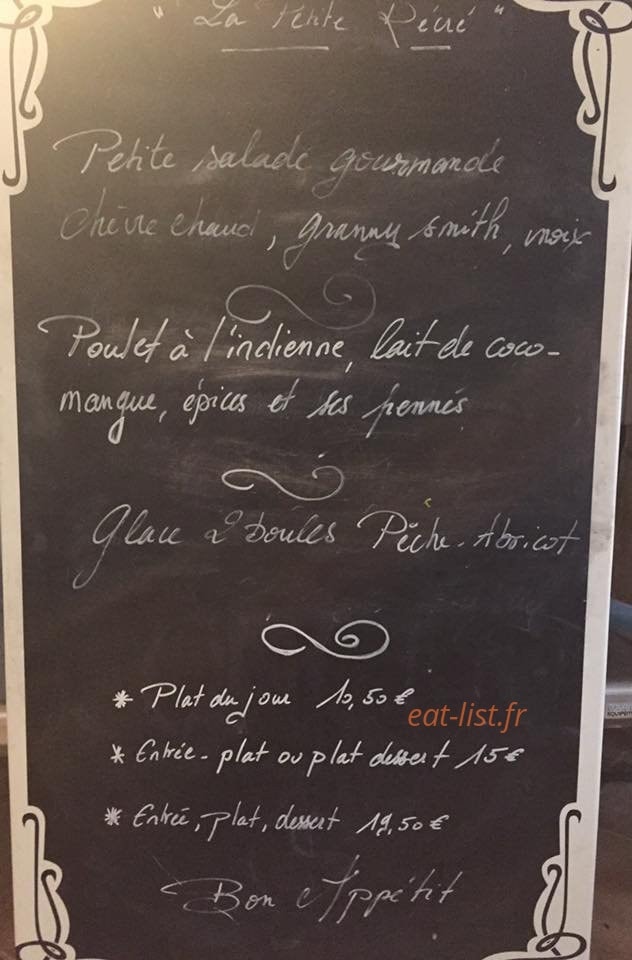 " La Petite Récré "
Petite salade gourmande
chèvre chaud, granny smith, noix
Poulet à l'indienne, lait de coco-
mangue, épices et ses pennés
Glace 2 boules Pêche-Abricot
* Plat du jour 10,50€
eat-list.fr
* Entrée-plat ou plat dessert 15€
* Entrée, plat, dessert 19,50€
Bon Appétit